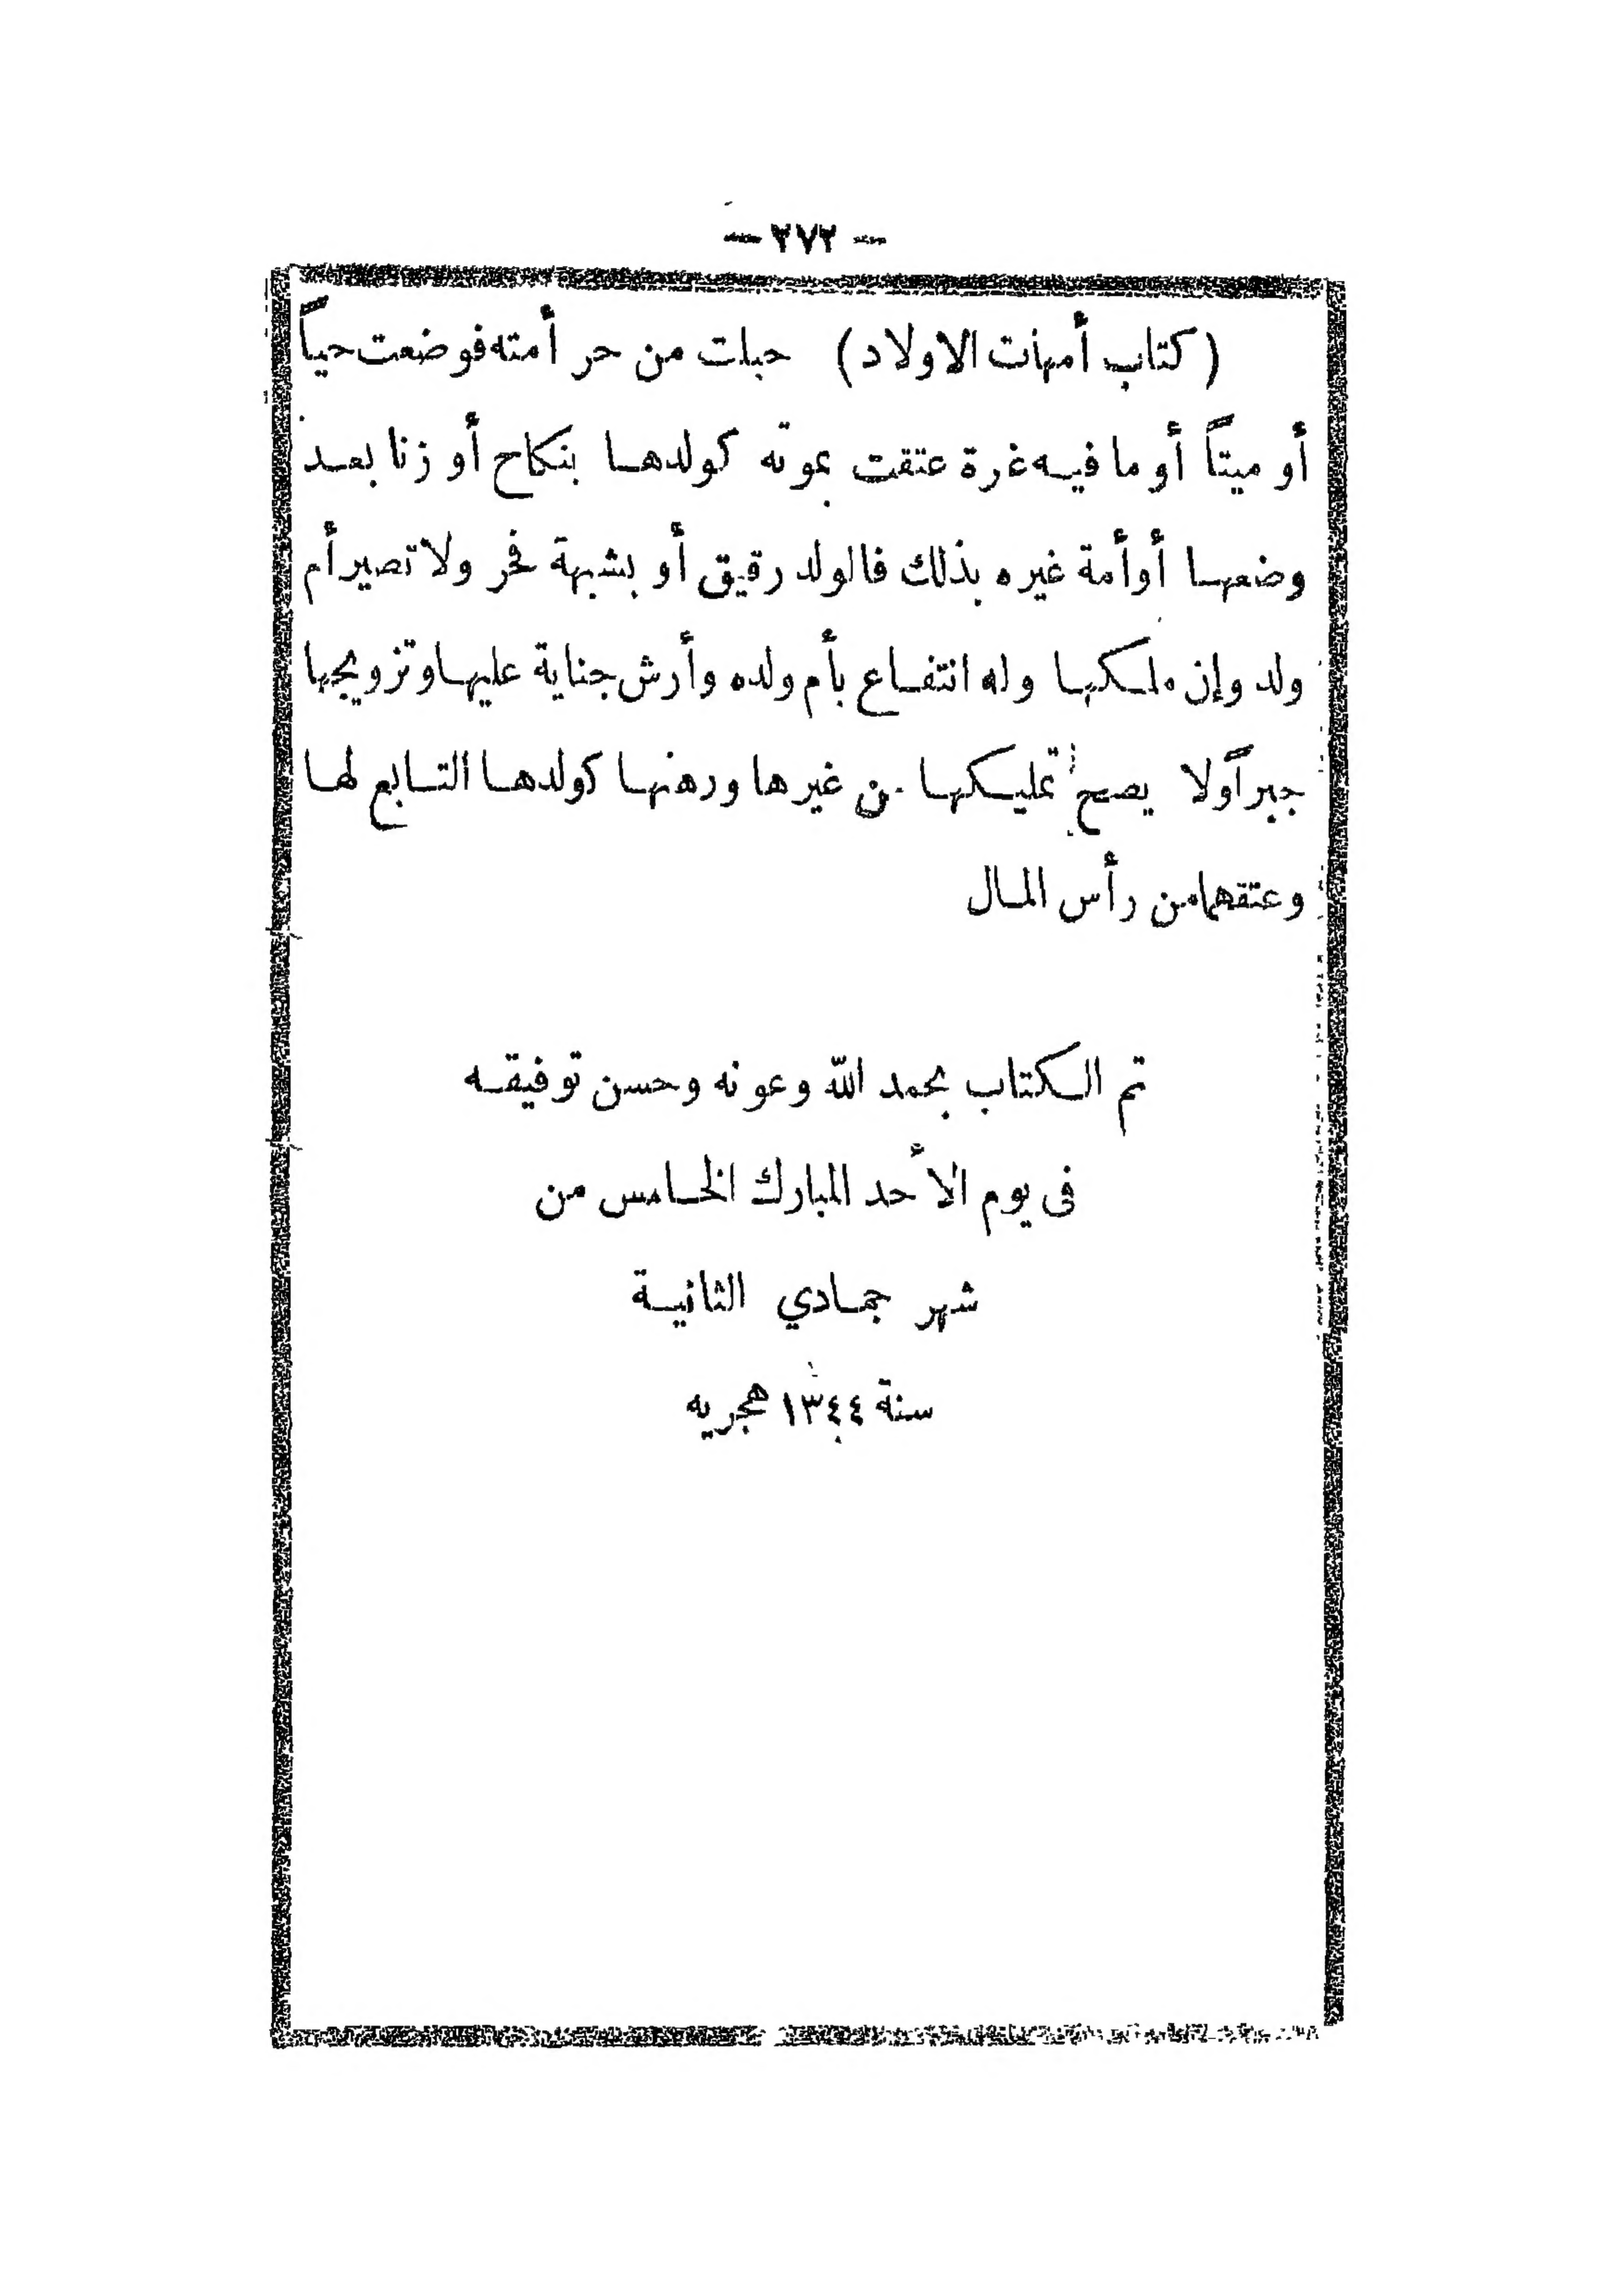 — ٢٧٢ —
(كتاب أمهات الاولاد) حبلت من حر أمته فوضعت حياً
أو ميتاً أو ما فيه غرة عتقت بموته كولدها بنكاح أو زنا بعد
وضعها أو أمة غيره بذلك فالولد رقيق أو بشبهة فحر ولا تصير أم
ولد وإن ملكها وله انتفاع بأم ولده وأرش جناية عليها وتزويجها
جبراً ولا يصح تمليكها من غيرها ورهنها كولدها التابع لها
وعتقهما من رأس المال
تم الكتاب بحمد الله وعونه وحسن توفيقه
فى يوم الأحد المبارك الخامس من
شهر جمادي الثانية
سنة ١٣٤٤ هجريه